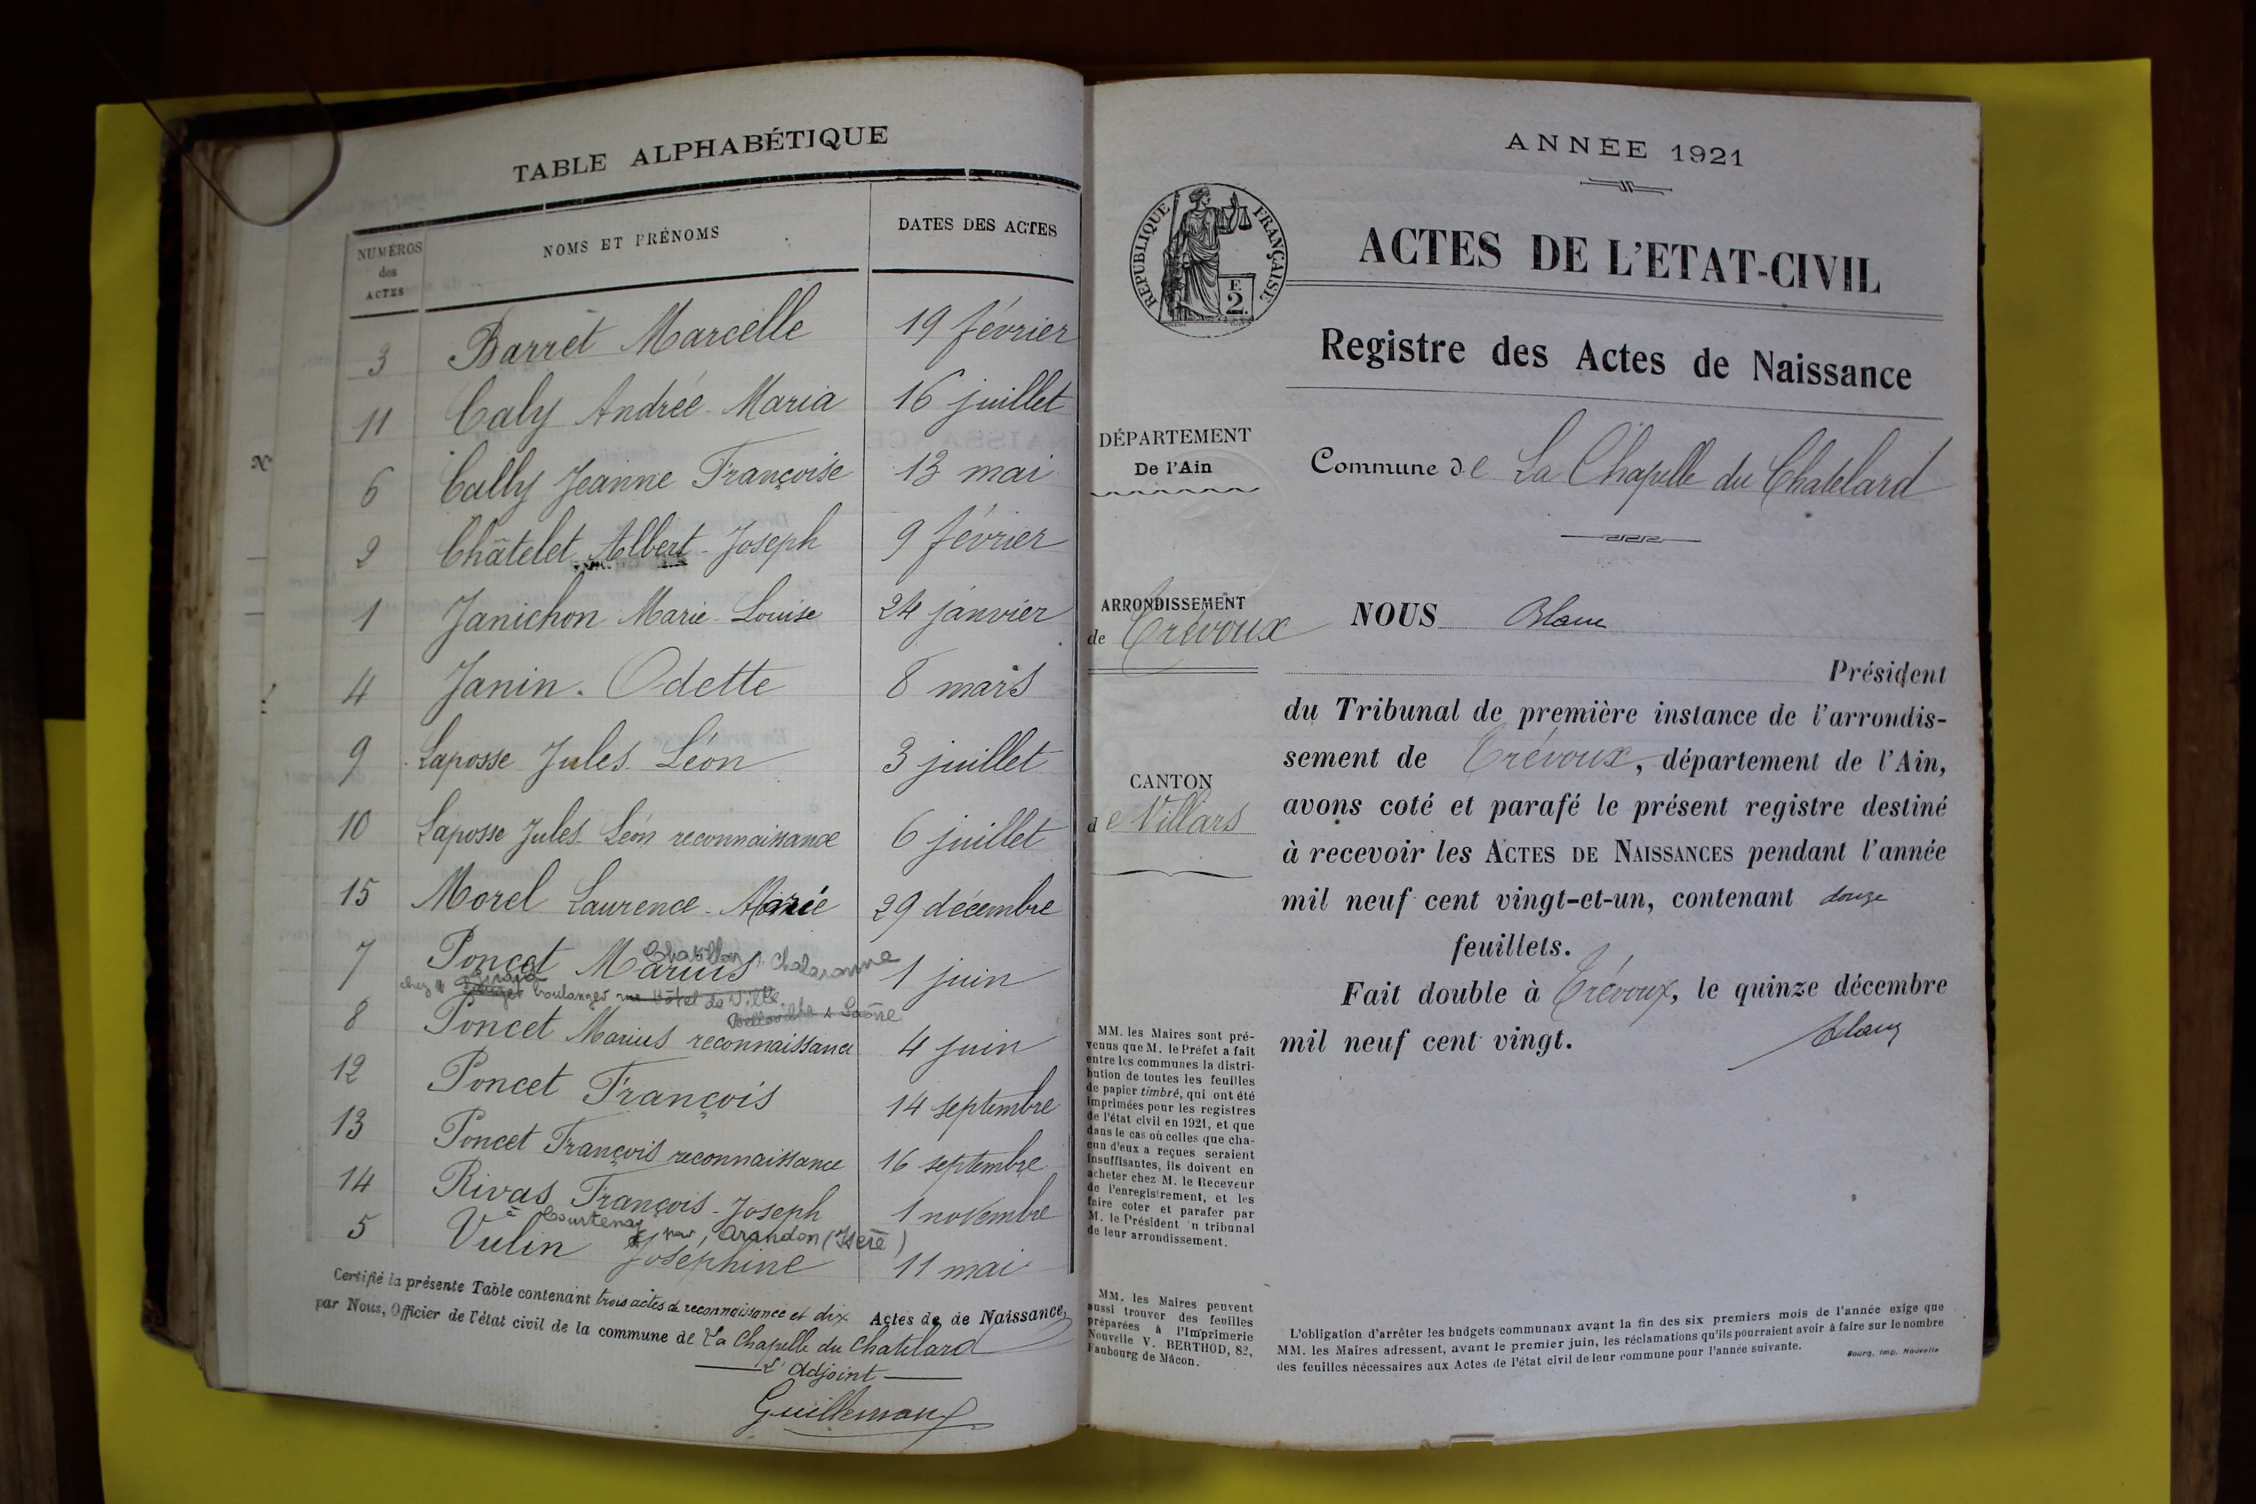 TABLE ALPHABÉTIQUE
NUMÉROS des ACTES
NOMS ET PRÉNOMS
DATES DES ACTES
3 Barret Marcelle 19 février
11 Caly Andrée Maria 16 juillet
6 Cally Jeanne Françoise 13 mai
2 Châtelet Albert-Joseph 9 février
1 Janichon Marie-Louise 24 janvier
4 Janin. Odette 8 mars
9 Laposse Jules Léon 3 juillet
10 Laposse Jules Léon reconnaissance 6 juillet
15 Morel Laurence-Marie 29 décembre
Chatillon s. Chalaronne
7 Poncet Marius 1 juin
chez boulanger rue Hôtel de Ville
Belleville s Saône
8 Poncet Marius reconnaissance 4 juin
12 Poncet François 14 septembre
13 Poncet François reconnaissance 16 septembre
14 Rivas François-Joseph 1 novembre
à Courtenay par Arandon (Isère)
5 Vulin Joséphine 11 mai
Certifié la présente Table contenant trois actes de reconnaissance et dix Actes de de Naissance,
par Nous, Officier de l'état civil de la commune de La Chapelle du Chatelard
L'Adjoint
ANNÉE 1921
RÉPUBLIQUE FRANÇAISE
F.
2.
ACTES DE L'ETAT-CIVIL
Registre des Actes de Naissance
DÉPARTEMENT
De l'Ain
Commune de La Chapelle du Chatelard
ARRONDISSEMENT
de Trévoux
NOUS Blanc
Président
du Tribunal de première instance de l'arrondis-
sement de Trévoux, département de l'Ain,
avons coté et parafé le présent registre destiné
à recevoir les ACTES DE NAISSANCES pendant l'année
mil neuf cent vingt-et-un, contenant douze
feuillets.
Fait double à Trévoux, le quinze décembre
mil neuf cent vingt.
Blanc
CANTON
de Villars
MM. les Maires sont pré-
venus que M. le Préfet a fait
entre les communes la distri-
bution de toutes les feuilles
de papier timbré, qui ont été
imprimées pour les registres
de l'état civil en 1921, et que
dans le cas où celles que cha-
cun d'eux a reçues seraient
insuffisantes, ils doivent en
acheter chez M. le Receveur
de l'enregistrement, et les
faire coter et parafer par
M. le Président 'u tribunal
de leur arrondissement.
MM. les Maires peuvent
aussi trouver des feuilles
préparées à l'Imprimerie
Nouvelle V. BERTHOD, 82,
Faubourg de Mâcon.
L'obligation d'arrêter les budgets communaux avant la fin des six premiers mois de l'année exige que
MM. les Maires adressent, avant le premier juin, les réclamations qu'ils pourraient avoir à faire sur le nombre
des feuilles nécessaires aux Actes de l'état civil de leur commune pour l'année suivante.
Bourg, Imp. Nouvelle